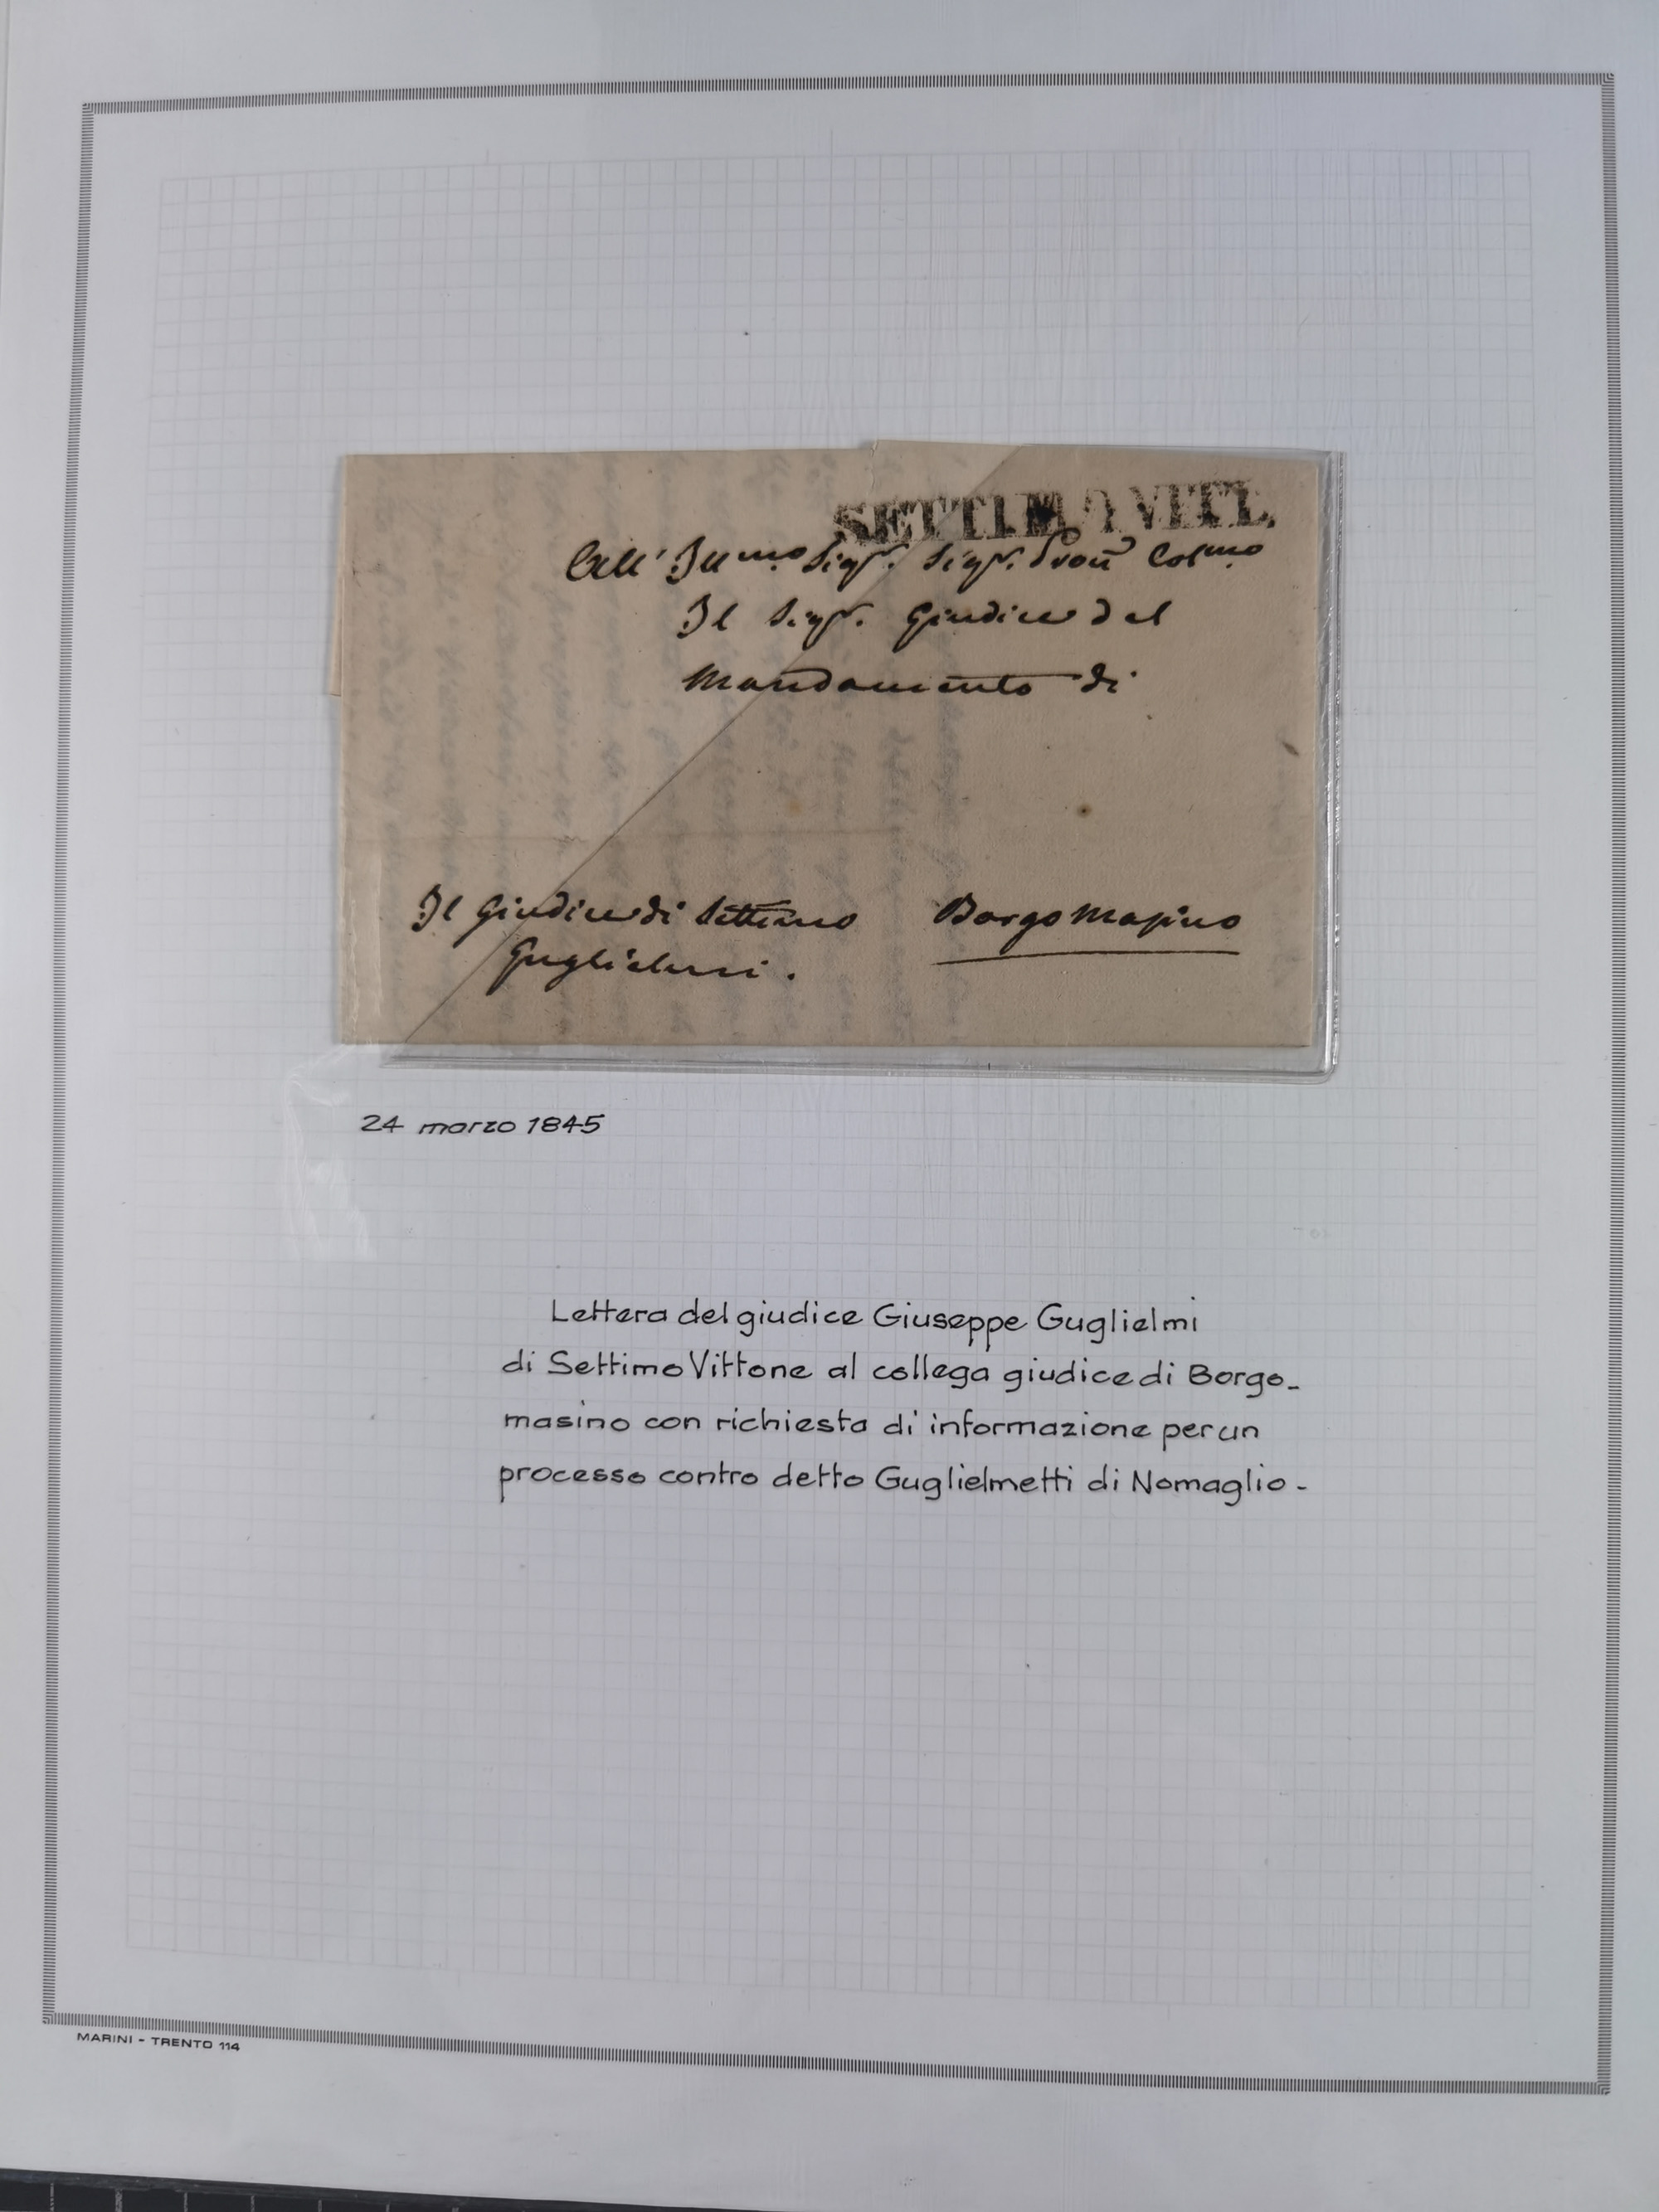 SETTIMO VITT.
All' Ill.mo Sigr. Sigr. Pron Col.mo
Il Sigr. Giudice del
Mandamento di
Il Giudice di Settimo
Guglielmi.
Borgo Masino
24 marzo 1845
Lettera del giudice Giuseppe Guglielmi
di Settimo Vittone al collega giudice di Borgo-
masino con richiesta di informazione per un
processo contro detto Guglielmetti di Nomaglio-
MARINI - TRENTO 114